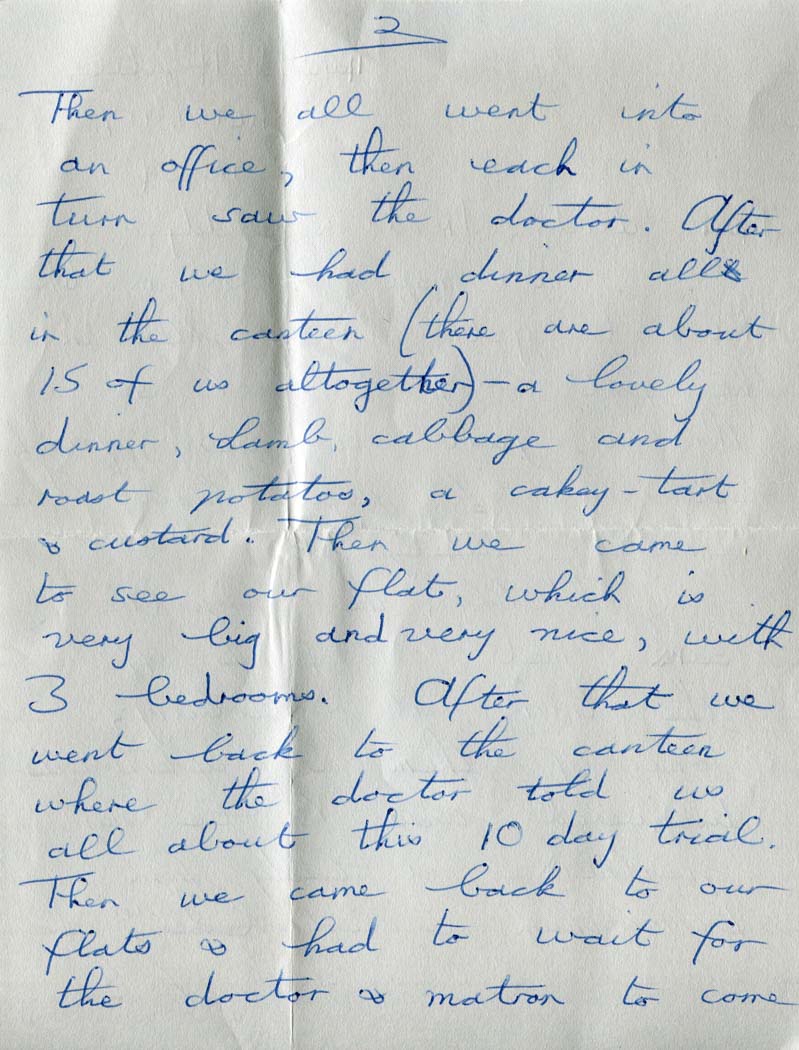 2
Then we all went into
an office, then each in
turn saw the doctor. After
that we had dinner all
in the canteen (there are about
15 of us altogether) – a lovely
dinner, lamb, cabbage and
roast potatos, a cakey-tart
& custard. Then we came
to see our flats, which is
very big and very nice, with
3 bedrooms. After that we
went back to the canteen
where the doctor told us
all about this 10 day trial.
Then we came back to our
flats & had to wait for
the doctor & matron to come